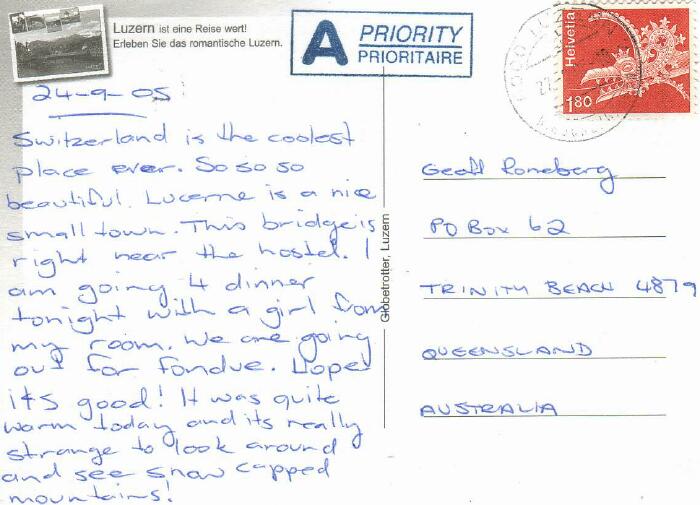 Luzern ist eine Reise wert!
Erleben Sie das romantische Luzern.
A PRIORITY
PRIORITAIRE
Helvetia
1.80
24-9-05
Switzerland is the coolest
place ever. So so so
beautiful. Lucerne is a nice
small town. This bridge is
right near the hostel. I
am going 4 dinner
tonight with a girl from
my room. We are going
out for fondue. Hope
its good! It was quite
warm today and its really
strange to look around
and see snow capped
mountains!
Globetrotter, Luzern
Geoff Roneberg
PO Box 62
TRINITY BEACH 4879
QUEENSLAND
AUSTRALIA